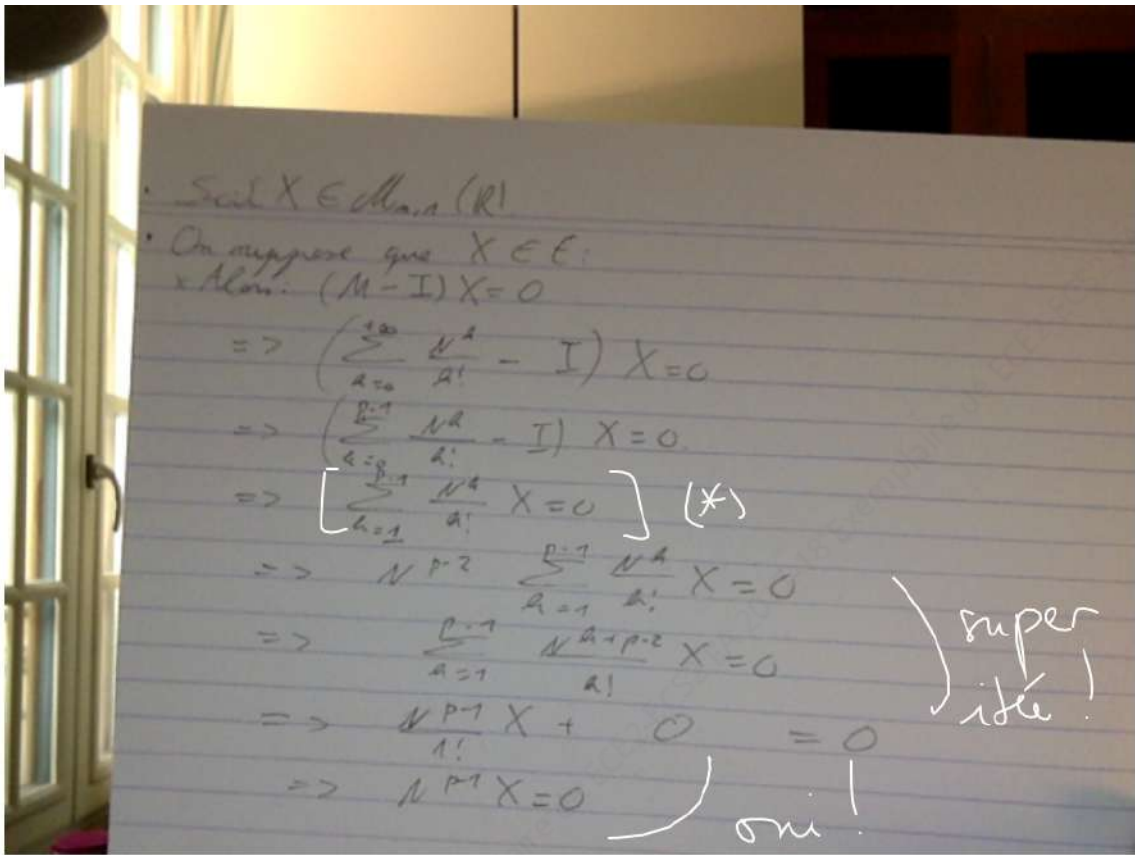 • Soit X ∈ M_{n,1} (R)
• On suppose que X ∈ E :
x Alors : (M - I) X = 0
=> ( ∑_{k=0}^{+∞} N^k / k! - I ) X = 0
=> ( ∑_{k=0}^{p-1} N^k / k! - I ) X = 0.
=> [ ∑_{k=1}^{p-1} N^k / k! X = 0 ] (*)
=> N^{p-2} ∑_{k=1}^{p-1} N^k / k! X = 0
=> ∑_{k=1}^{p-1} N^{k+p-2} / k! X = 0
super idée !
=> N^{p-1} / 1! X + 0 = 0
=> N^{p-1} X = 0
oui !